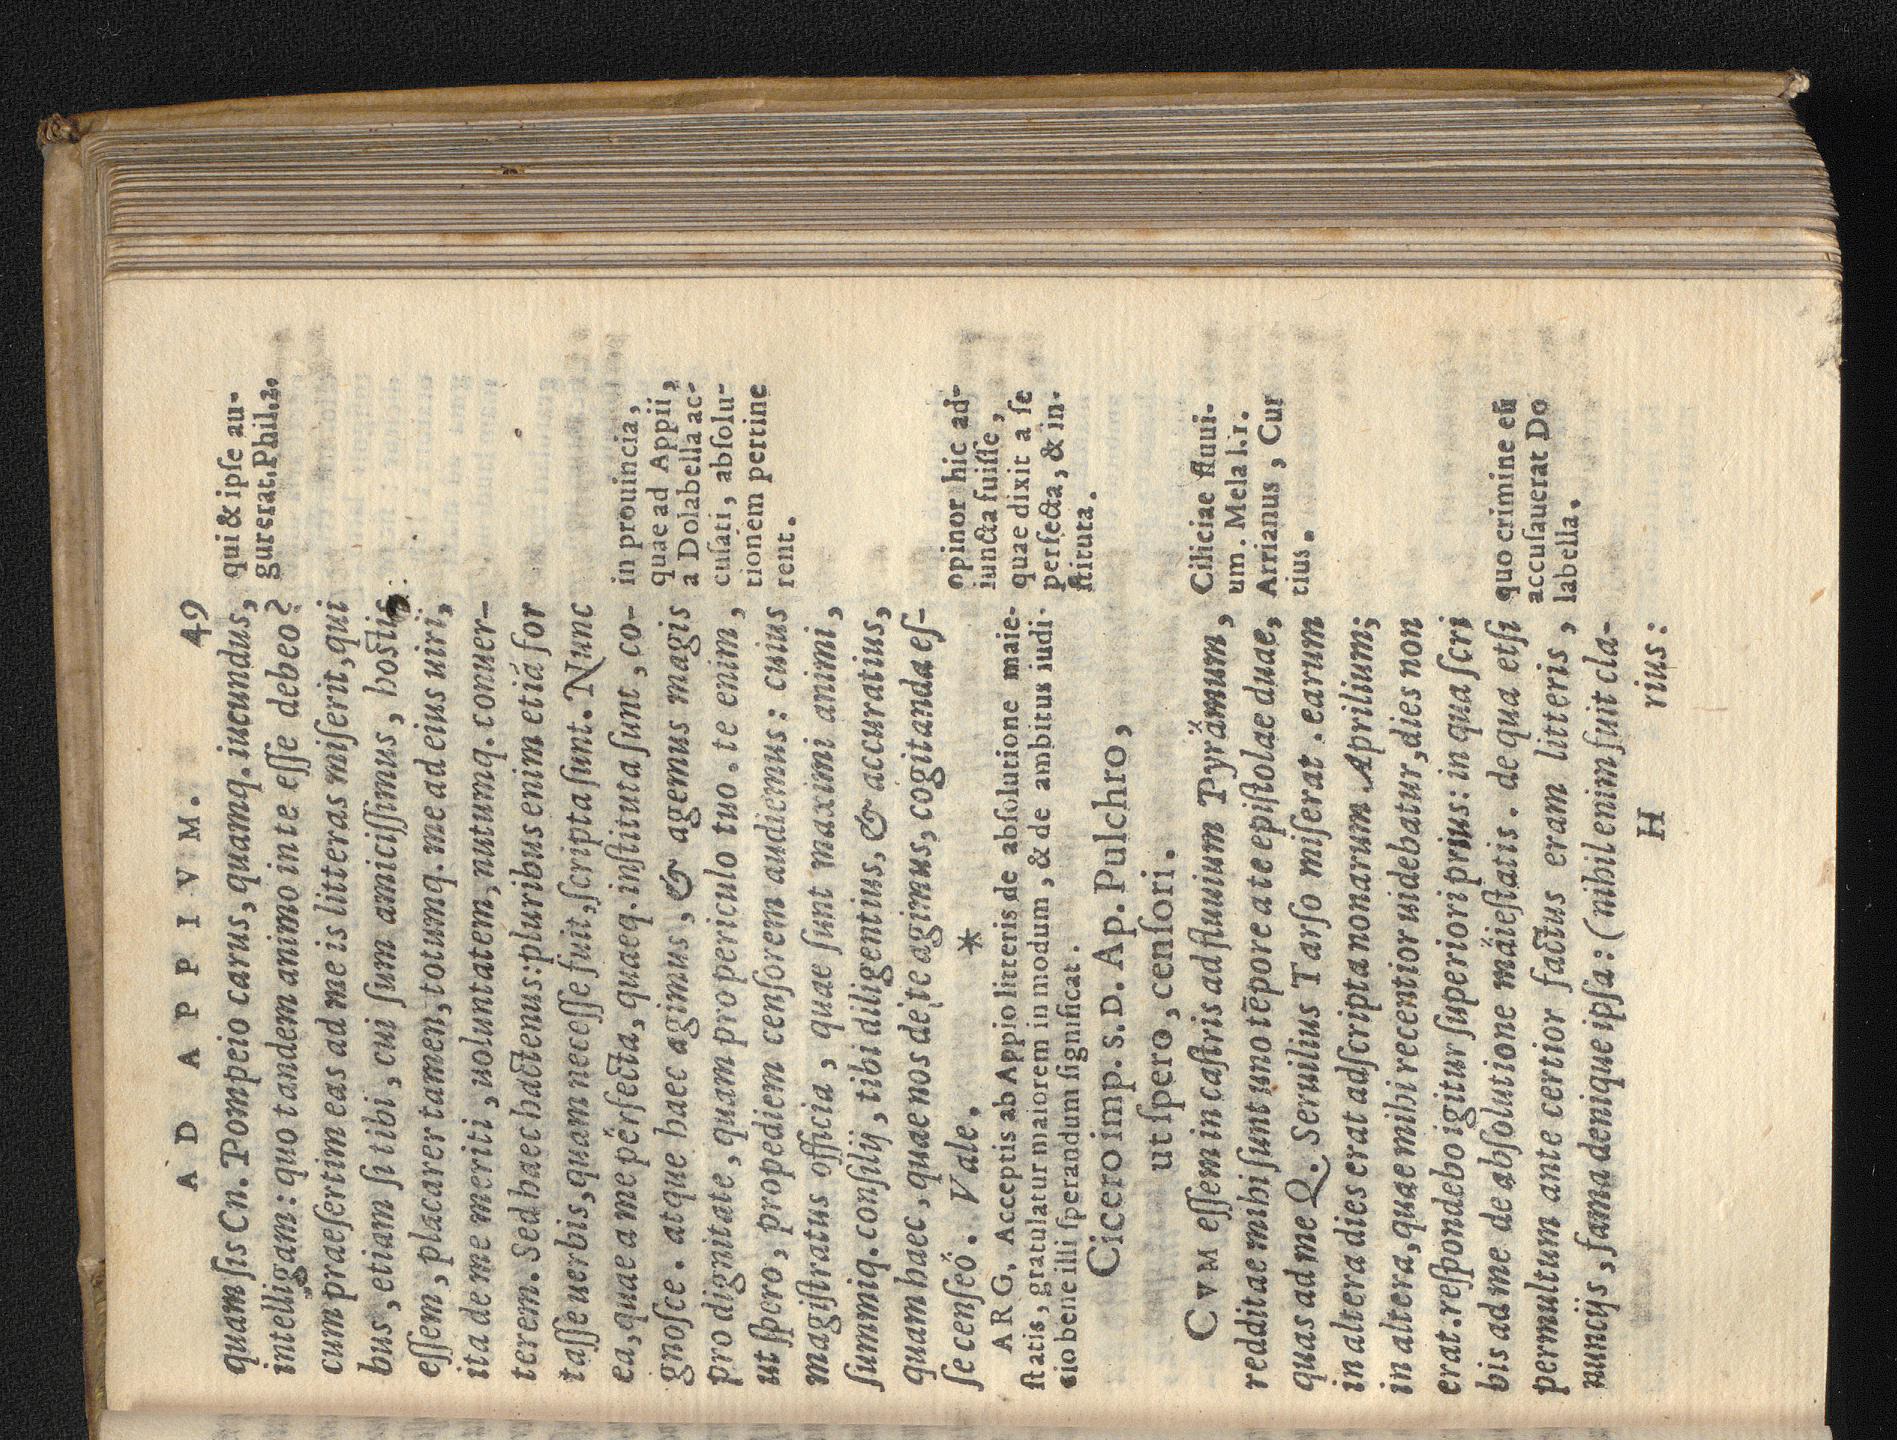 AD APPIVM. 49
quam ſis Cn. Pompeio carus, quamq. iucundus,
intelligam: quo tandem animo in te eſſe debeo?
cum praeſertim eas ad me is litteras miſerit, qui
bus, etiam ſi tibi, cui ſum amiciſſimus, hostis
eſſem, placarer tamen, totumq. me ad eius uiri,
ita de me meriti, uoluntatem, nutumq. conuer-
terem. Sed haec hactenus: pluribus enim etiá for
taſſe uerbis, quam neceſſe fuit, ſcripta ſunt. Nunc
ea, quae a me përfecta, quaeq. inſtituta ſunt, co-
gnoſce. atque haec agimus, & agemus magis
pro dignitate, quam pro periculo tuo. te enim,
ut ſpero, propediem cenſorem audiemus: cuius
magiſtratus officia, quae ſunt maximi animi,
ſummiq. conſilij, tibi diligentius, & accuratius,
quam haec, quae nos de te agimus, cogitanda eſ-
ſe cenſeö. Vale. *
ARG. Acceptis ab Appio litteris de abſolutione maie-
ſtatis, gratulatur maiorem in modum, & de ambitus iudi-
cio bene illi ſperandum ſignificat.
Cicero imp. S. D. Ap. Pulchro,
ut ſpero, cenſori.
CVM eſſem in caſtris ad fluuium Pyrämum,
redditae mihi ſunt uno tēpore a te epiſtolae duae,
quas ad me Q. Seruilius Tarſo miſerat. earum
in altera dies erat adſcripta nonarum Aprilium;
in altera, quae mihi recentior uidebatur, dies non
erat. reſpondebo igitur ſuperiori prius: in qua ſcri
bis ad me de abſolutione mäieſtatis. de qua etſi
permultum ante certior factus eram litteris,
nuncijs, fama denique ipſa: (nihil enim fuit cla-
H rius:
qui & ipſe au-
gurerat. Phil. 2.
in prouincia,
quae ad Appii,
a Dolabella ac-
cuſati, abſolu-
tionem pertine
rent.
opinor hic ad-
iuncta fuiſſe,
quae dixit a ſe
perfecta, & in-
ſtituta.
Ciliciae fluui-
um. Mela l. 1.
Arrianus, Cur
tius.
quo crimine eū
accuſauerat Do
labella.